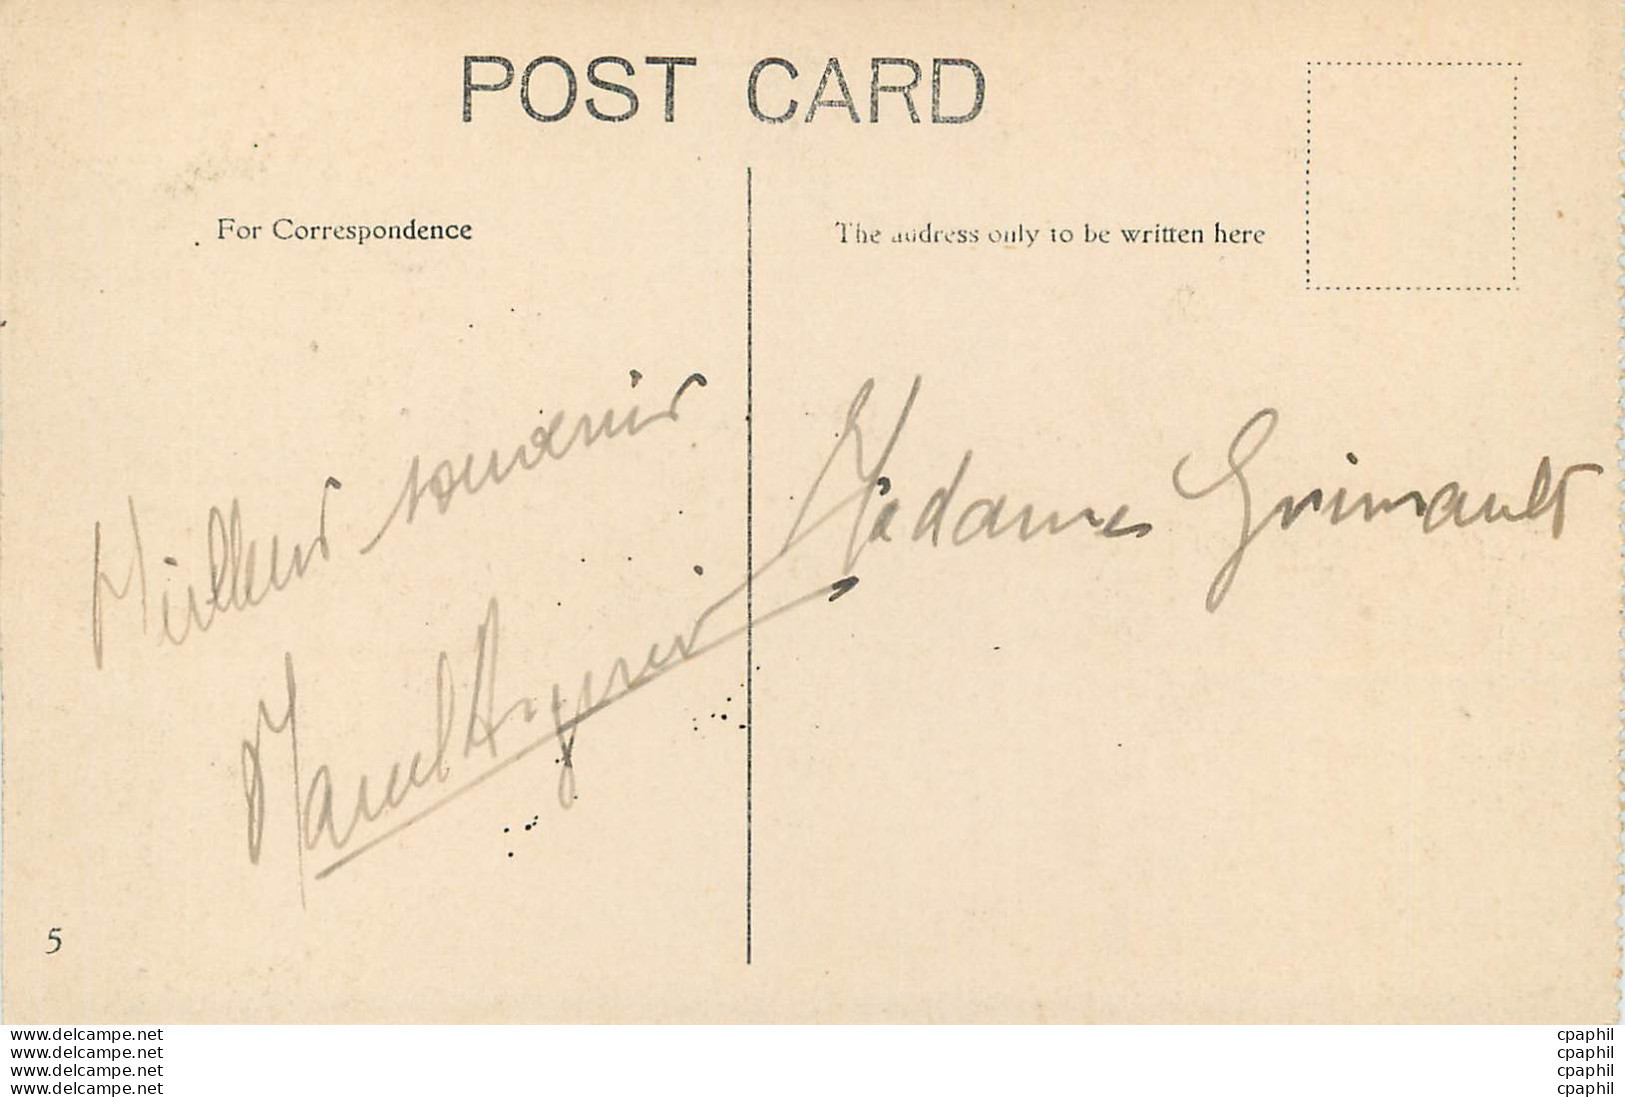 POST CARD
For Correspondence
The address only to be written here
Meilleur souvenir
Marcel
Madame Grimault
5
www.delcampe.net
www.delcampe.net
www.delcampe.net
www.delcampe.net
cpaphil
cpaphil
cpaphil
cpaphil